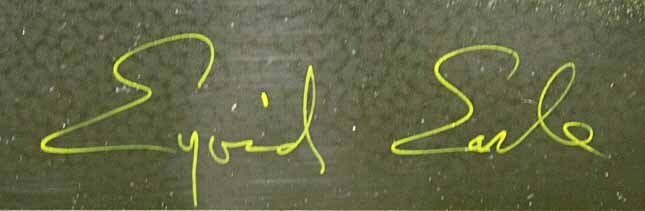 Eyvind Earle